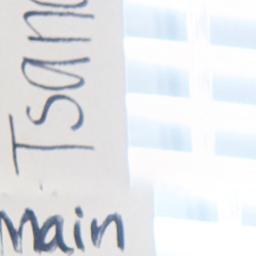 Tsand
Main